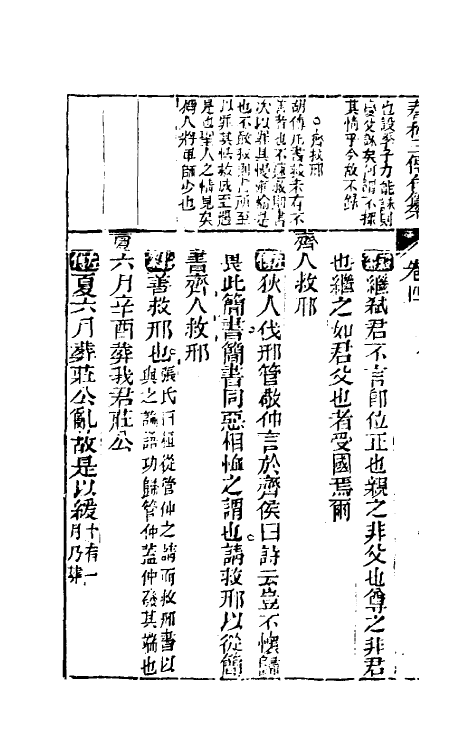 春秋三傳合纂
卷四
也設季子力能誅則
慶父誅矣何謂不探
其情乎今故不錄
○齊救邢
胡傳凡書救未有不
善者也
次以罪其慢
也不敢救則書所至
以罪其怯救成至遇
是也聖人之情見矣
將軍師少也
穀繼弒君不言即位正也親之非父也尊之非君
也繼之如君父也者受國焉爾
齊人救邢
左傳狄人伐邢管敬仲言於齊侯曰詩云豈不懷歸
畏此簡書簡書同惡相恤之謂也請救邢以從簡
書齊人救邢
穀善救邢也張氏曰桓從管仲之請而救邢書以
與之論語功歸管仲蓋仲發其端也
夏六月辛酉葬我君莊公
左傳夏六月葬莊公亂故是以緩十有一
月乃葬